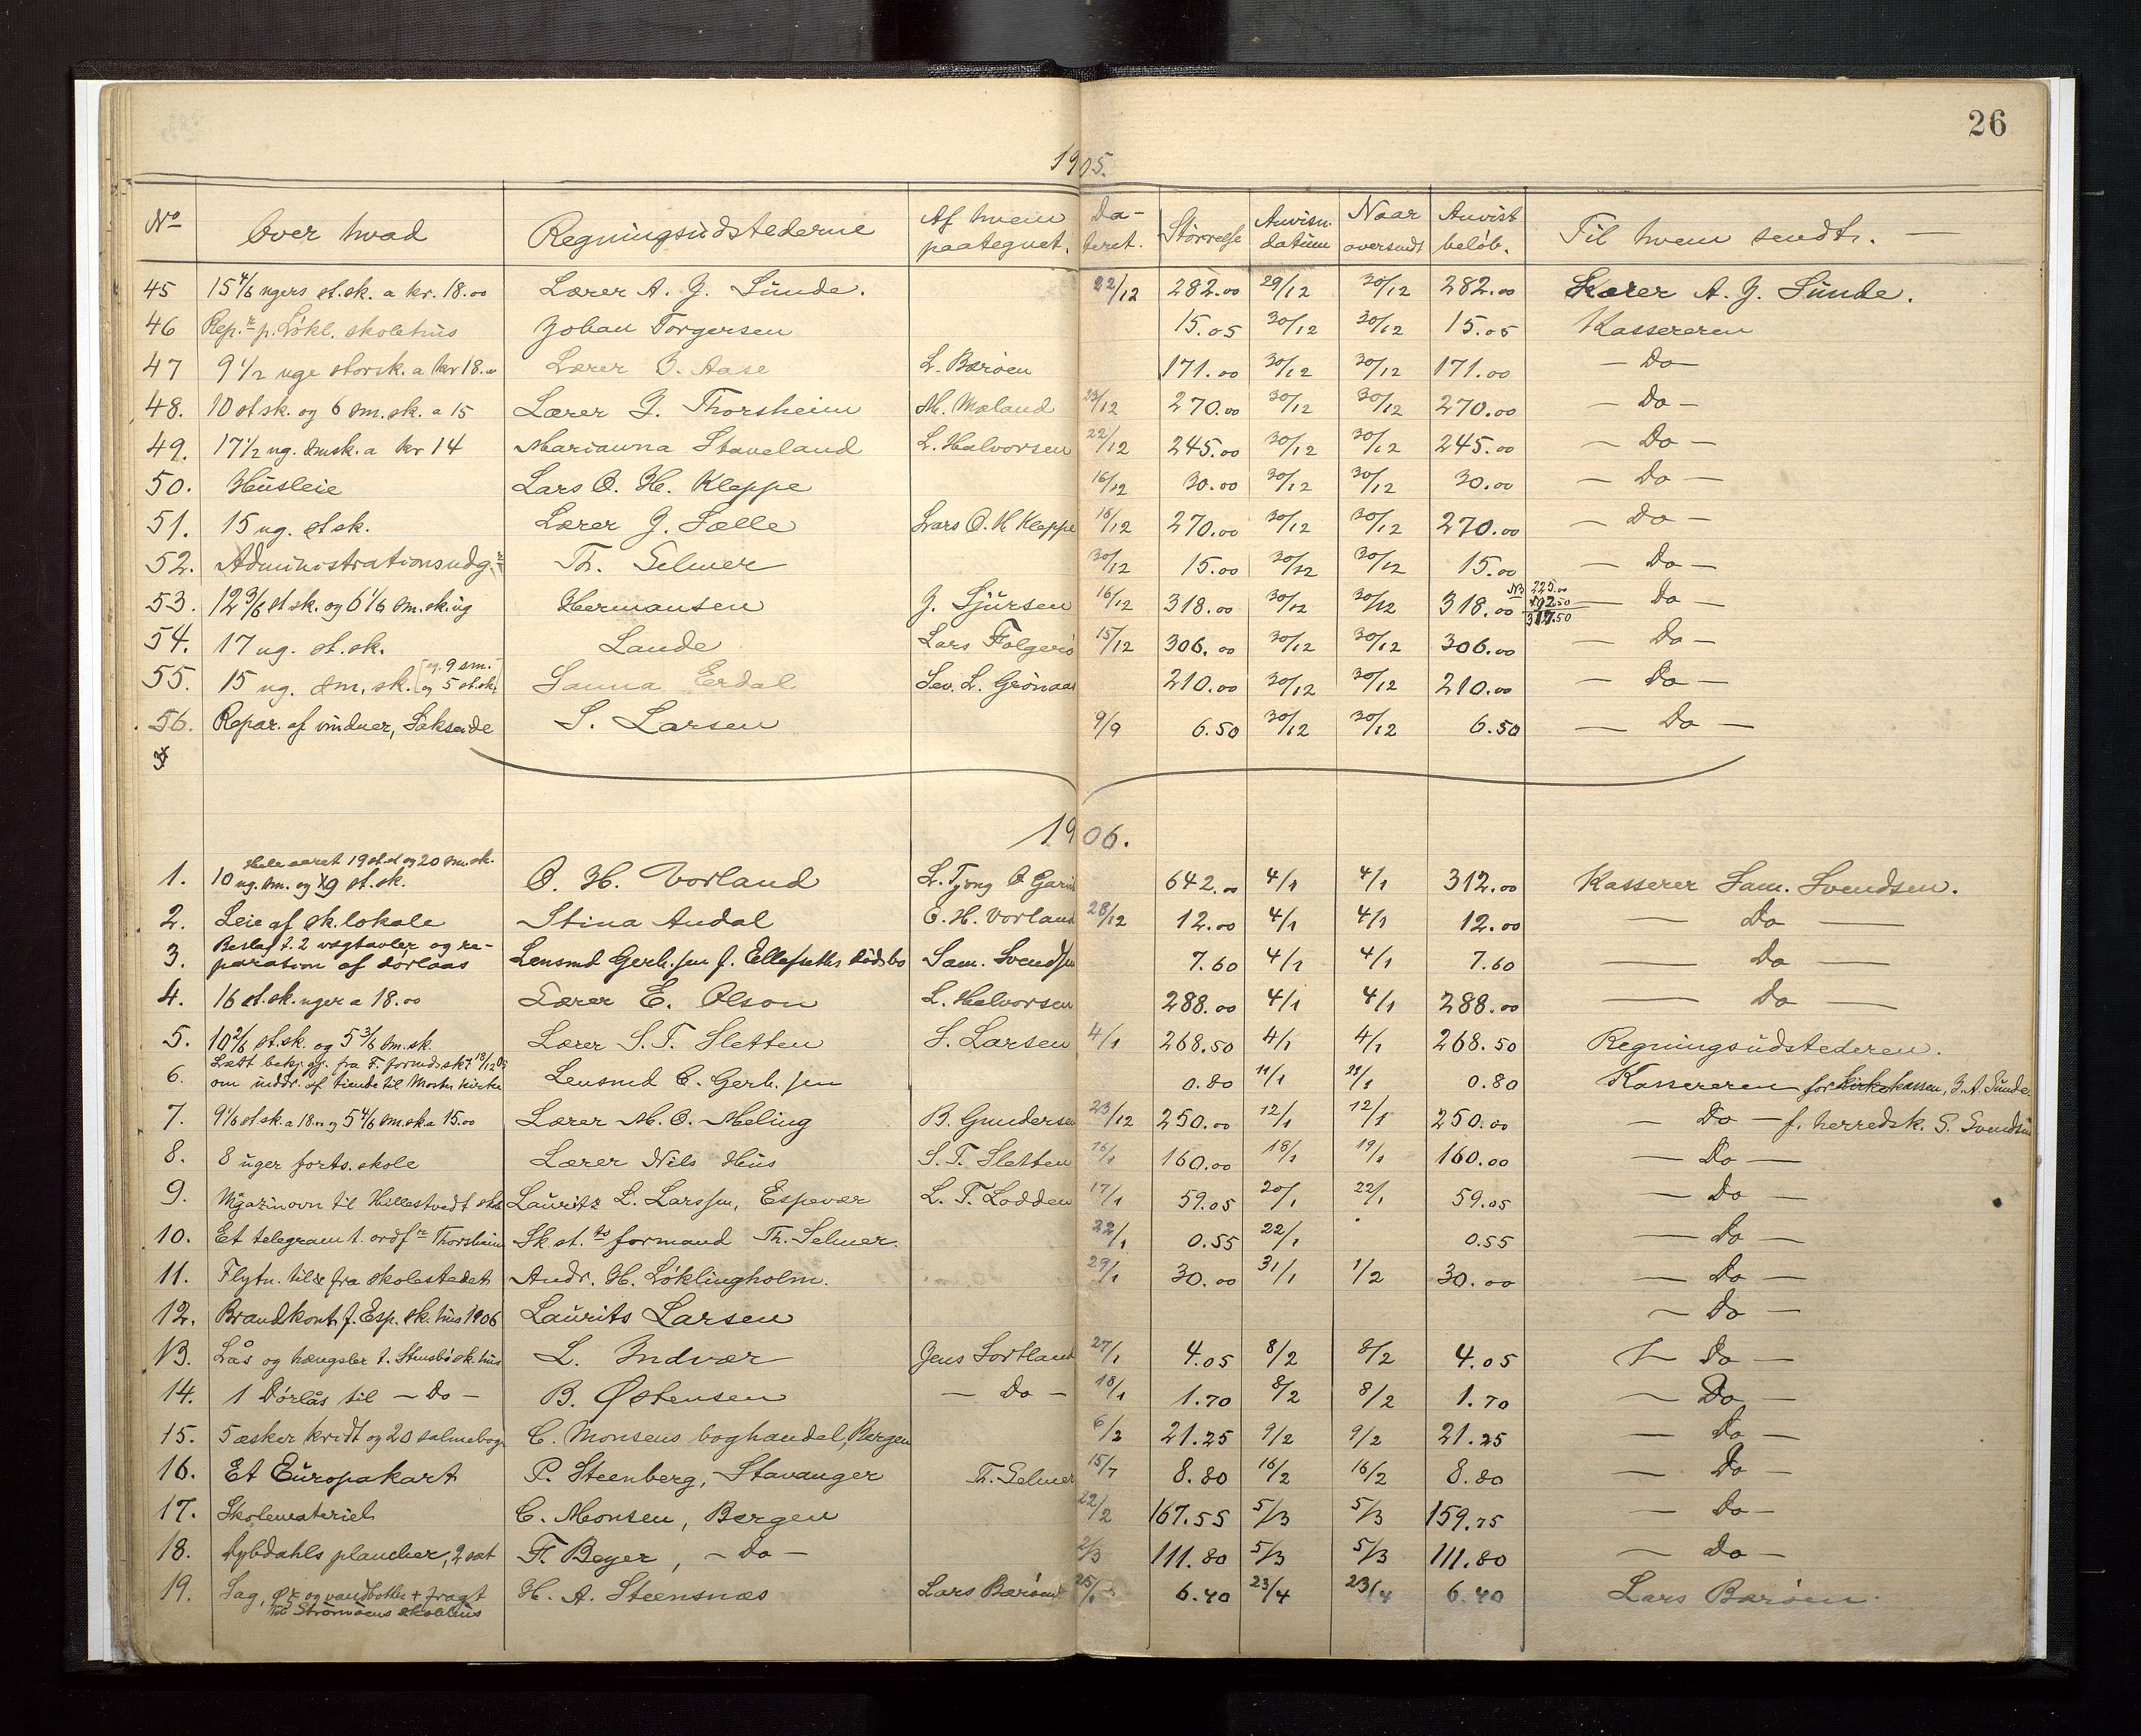 26
1905.
No Over hvad Regningsudstederne Af hvem paategnet. Da-teret. Störrelse Anvisn. datum Naar oversendt Anvist belöb. Til hvem sendt. —
45 15 4/6 ugers st.sk. a kr. 18.00 Lærer A. G. Sunde. 22/12 282.00 29/12 30/12 282.00 Lærer A. G. Sunde.
46 Rep.r p. Lökl. skolehus Johan Torgersen 15.05 30/12 30/12 15.05 Kassereren
47 9 1/2 uge storsk. a kr 18.00 Lærer O. Aase L. Baröen 171.00 30/12 30/12 171.00 — Do —
48. 10 st.sk. og 6 sm.sk. a 15 Lærer G. Thorsheim M. Mæland 23/12 270.00 30/12 30/12 270.00 — Do —
49. 17 1/2 ug. smsk. a kr 14 Marianna Staveland L. Halvorsen 22/12 245.00 30/12 30/12 245.00 — Do —
50. Husleie Lars O. H. Kleppe 16/12 30.00 30/12 30/12 30.00 — Do —
51. 15 ug. st.sk. Lærer J. Sælle Lars O. H Kleppe 16/12 270.00 30/12 30/12 270.00 — Do —
52. Administrationsudg.r Th. Selmer 30/12 15.00 30/12 30/12 15.00 — Do —
53. 12 3/6 st.sk. og 6 1/6 sm.sk.ug Hermansen J. Sjursen 16/12 318.00 30/12 30/12 318.00 NB 225.00 92.50 317.50 — Do —
54. 17 ug. st.sk. Lande Lars Folgerö 15/12 306.00 30/12 30/12 306.00 — Do —
55. 15 ug. sm. sk. [eg. 9 sm. og 5 st.sk.] Sanna Erdal Sev. L. Grönaas 210.00 30/12 30/12 210.00 — Do —
56. Repar. af vinduer, Sakseide S. Larsen 9/9 6.50 30/12 30/12 6.50 — Do —
1906.
Hele aaret 19 st.sk og 20 sm.sk.
1. 10 ug. sm. og 9 st.sk. O. H. Vorland L. Tjong O Garvik 642.00 4/1 4/1 312.00 Kasserer Sam. Svendsen.
2. Leie af sk.lokale Stina Andal O. H. Vorland 28/12 12.00 4/1 4/1 12.00 — Do —
3. Beslag t. 2 vægtavler og re-
paration af dörlaas Lensmd Gerh.sen f. Ellefsens dödsbo Sam. Svendsen 7.60 4/1 4/1 7.60 — Do —
4. 16 st.sk.uger a 18.00 Lærer E. Olson L. Halvorsen 288.00 4/1 4/1 288.00 — Do —
5. 10 2/6 st.sk. og 5 3/6 sm.sk. Lærer S. T. Sletten S. Larsen 4/1 268.50 4/1 4/1 268.50 Regningsudstederen.
6. Læst bekj.gj. fra F. formdsk. 18/12 05
om inddr. af tiende til Moster kirke Lensmd C. Gerh.sen 0.80 11/1 23/1 0.80 Kassereren for Kirkekassen, J. A. Sunde.
7. 9 1/6 st.sk. a 18.00 og 5 4/6 sm.sk. a 15.00 Lærer M. O. Meling B. Gundersen 23/12 250.00 12/1 12/1 250.00 — Do — f. herredsk. S. Svendsen
8. 8 uger forts.skole Lærer Nils Hus S. T. Sletten 16/1 160.00 18/1 19/1 160.00 — Do —
9. Magazinovn til Hillestvedt skole Lauritz L. Larssen, Espevær L. T. Lodden 17/1 59.05 20/1 22/1 59.05 — Do —
10. Et telegram t. ordf.re Thorsheim Sk.st.ts formand Th. Selmer. 22/1 0.55 22/1 0.55 — Do —
11. Flytn. til & fra skolestedet Andr. H. Löklingholm. 29/1 30.00 31/1 1/2 30.00 — Do —
12. Brandkont. f. Esp. sk.hus 1906 Laurits Larsen — Do —
13. Lås og hængsler t. Stensbö sk.hus L. Indvær Jens Sortland 27/1 4.05 8/2 8/2 4.05 — Do —
14. 1 Dörlås til — Do — B. Østensen — Do — 18/1 1.70 8/2 8/2 1.70 — Do —
15. 5 æsker kridt og 20 salmebøger C. Monsens boghandel, Bergen 6/2 21.25 9/2 9/2 21.25 — Do —
16. Et Europakart P. Steenberg, Stavanger Th. Selmer 15/7 8.80 16/2 16/2 8.80 — Do —
17. Skolemateriel C. Monsen, Bergen 22/2 167.55 5/3 5/3 159.75 — Do —
18. Dybdahls plancher, 2 sæt F. Beyer, — Do — 2/3 111.80 5/3 5/3 111.80 — Do —
19. Sag, øx og vandbötte + fragt
til Strömöens skolehus H. A. Steensnæs Lars Baröen 25/ 6.40 23/4 23/4 6.40 Lars Baröen.